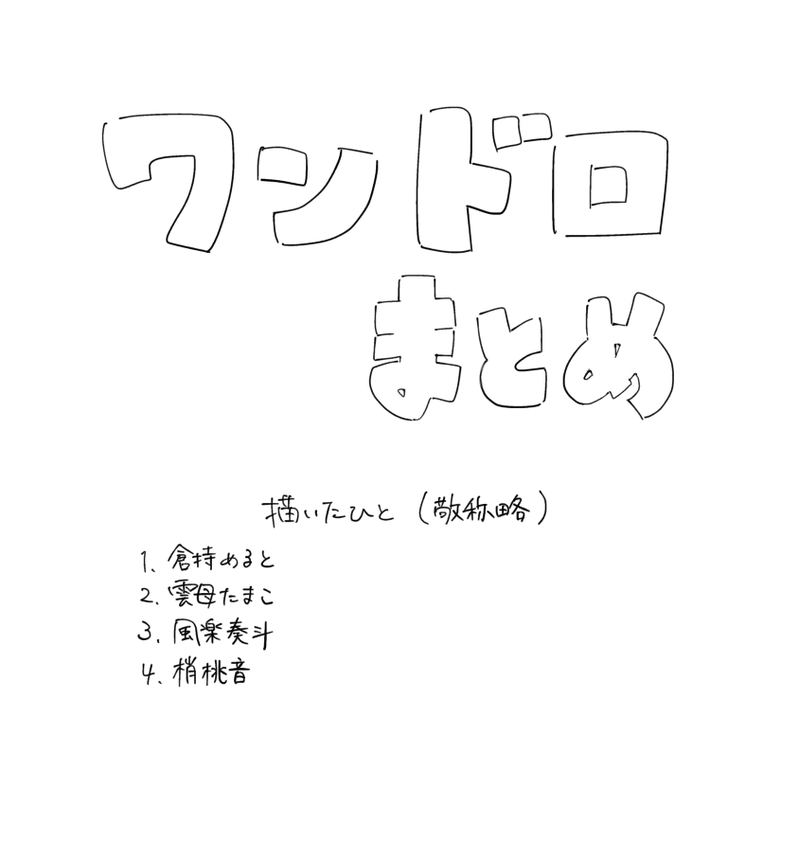 ワンドロ
まとめ
描いたひと（敬称略）
1. 倉持めると
2. 雲母たまこ
3. 風楽奏斗
4. 梢桃音